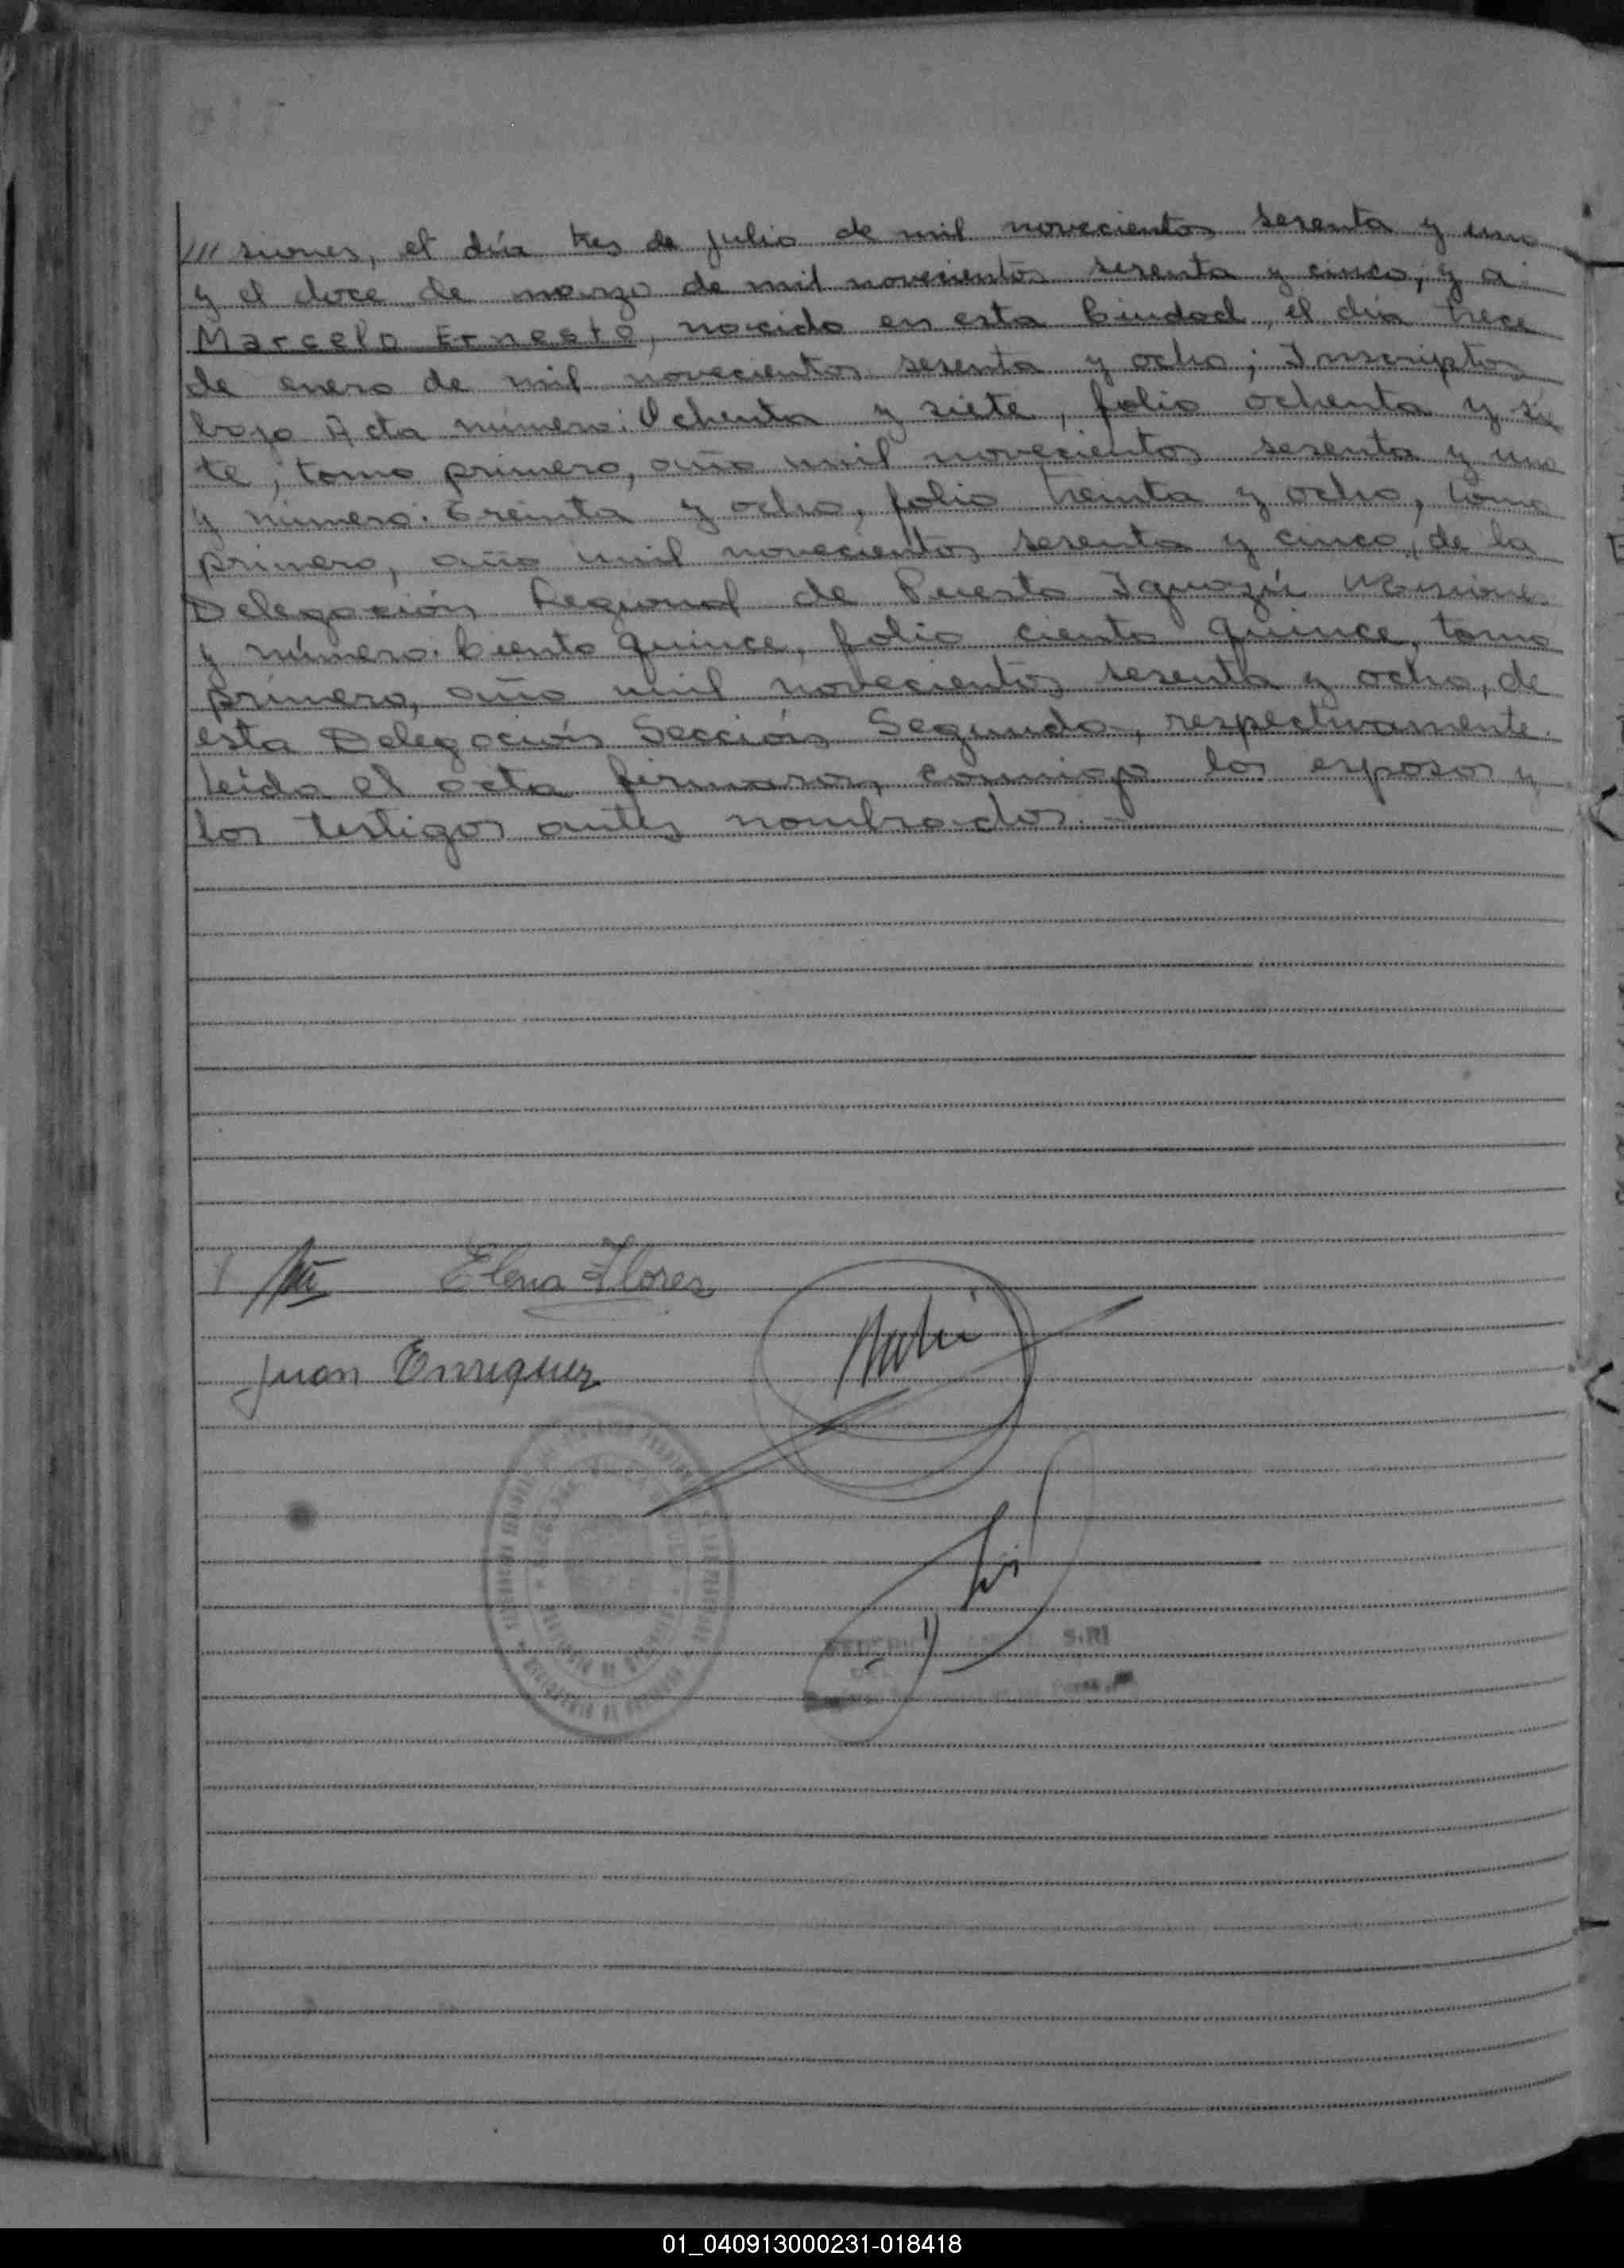 /// siones, el día tres de julio de mil novecientos sesenta y uno
y el doce de marzo de mil novecientos sesenta y cinco; y a
Marcelo Ernesto, nacido en esta Ciudad, el día trece
de enero de mil novecientos sesenta y ocho; Inscriptos
bajo Acta número: Ochenta y siete, folio ochenta y sie
te, tomo primero, año mil novecientos sesenta y uno
y número: Treinta y ocho, folio treinta y ocho, tomo
primero, año mil novecientos sesenta y cinco, de la
Delegación Regional de Puerto Iguazú Misiones
y número: Ciento quince, folio ciento quince, tomo
primero, año mil novecientos sesenta y ocho, de
esta Delegación Sección Segunda, respectivamente.
Leída el acta firmaron conmigo los esposos y
los testigos antes nombrados.-
Elena Flores
Juan Enriquez
SIRI
01_040913000231-018418